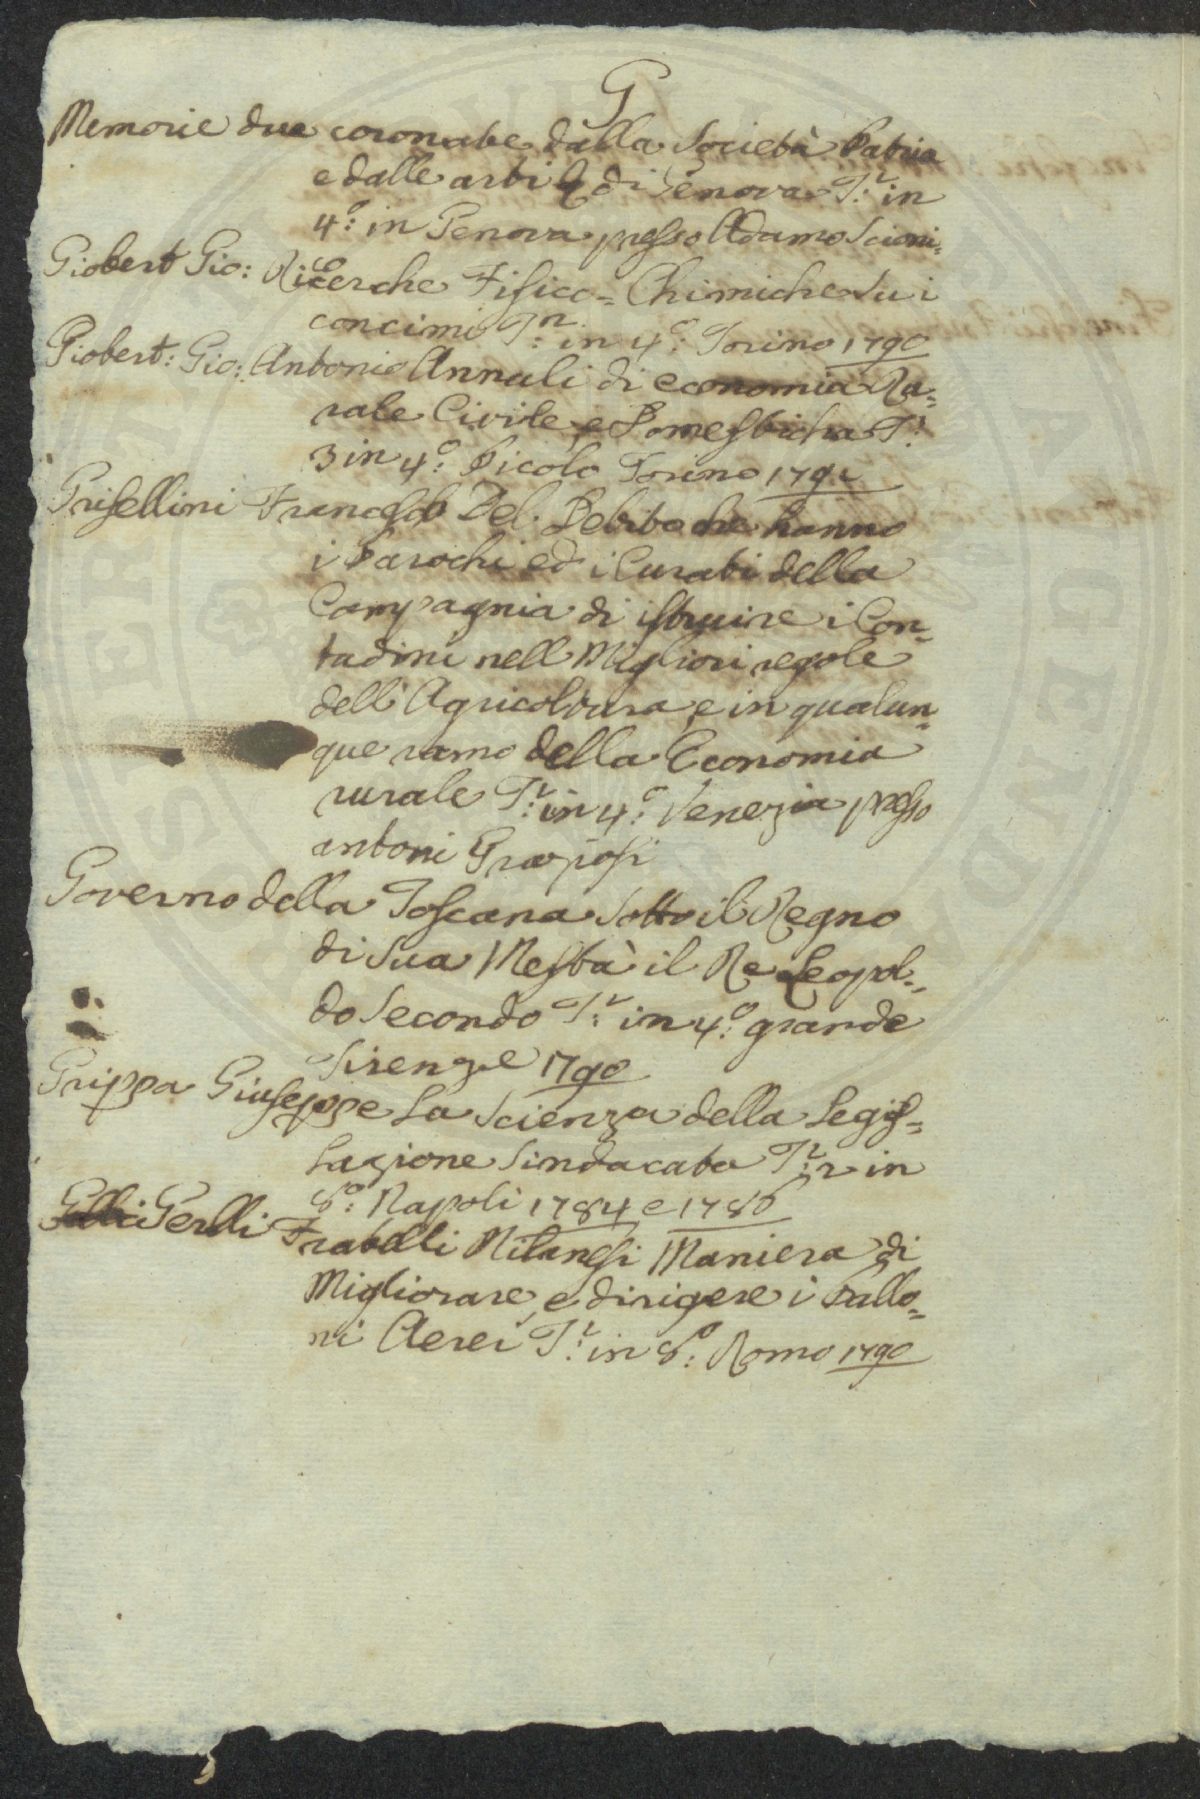 G
Memorie due coronate dalla Società Patria
e dalle arti di Genova T:º in
4:º in Genova presso Adamo Scioni=
Giobert Gio: Ricerche Fisico=Chimiche su i
concimi T:º in 4:º Torino 1790
Giobert: Gio: Antonio Annali di economia Ru=
rale Civile, e Domesticha T:
3 in 4:º Picolo Torino 1791
Grisellini Francesco Del. Debito che hanno
i Parochi ed i Curati della
Campagnia di istruire i Con=
tadini nell Migliori regole
dell'Agricoltura, e in qualun=
que ramo della Economia
rurale T:º in 4:º Venezia presso
antoni Graziosi
Governo della Toscana sotto il Regno
di Sua Mestà il Re Leopol=
do Secondo T:º in 4:º grande
Firenze 1790
Grippa Giuseppe La Scienza della Legis=
lazione Sindacata T: 2 in
8:º Napoli 1784 e 1786
Gerlli Fratelli Milanesi Maniera di
Migliorare, e dirigere i Pallo=
ni Aerei T:º in 8:º Romo 1790